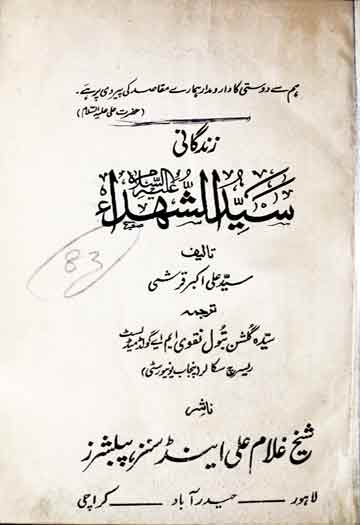 ہم سے دوستی کا دار و مدار ہمارے مقاصد کی پیروی پر ہے۔
(حضرت علی علیہ السلام)
زندگانی
سیّد الشہداء علیہ السلام
تالیف
سیّد علی اکبر قرشی
ترجمہ
سیّدہ گلشن بتول نقوی ایم اے گولڈ میڈلسٹ
ریسرچ سکالر (پنجاب یونیورسٹی)
83
ناشر
شیخ غلام علی اینڈ سنز، پبلشرز
لاہور — حیدر آباد — کراچی